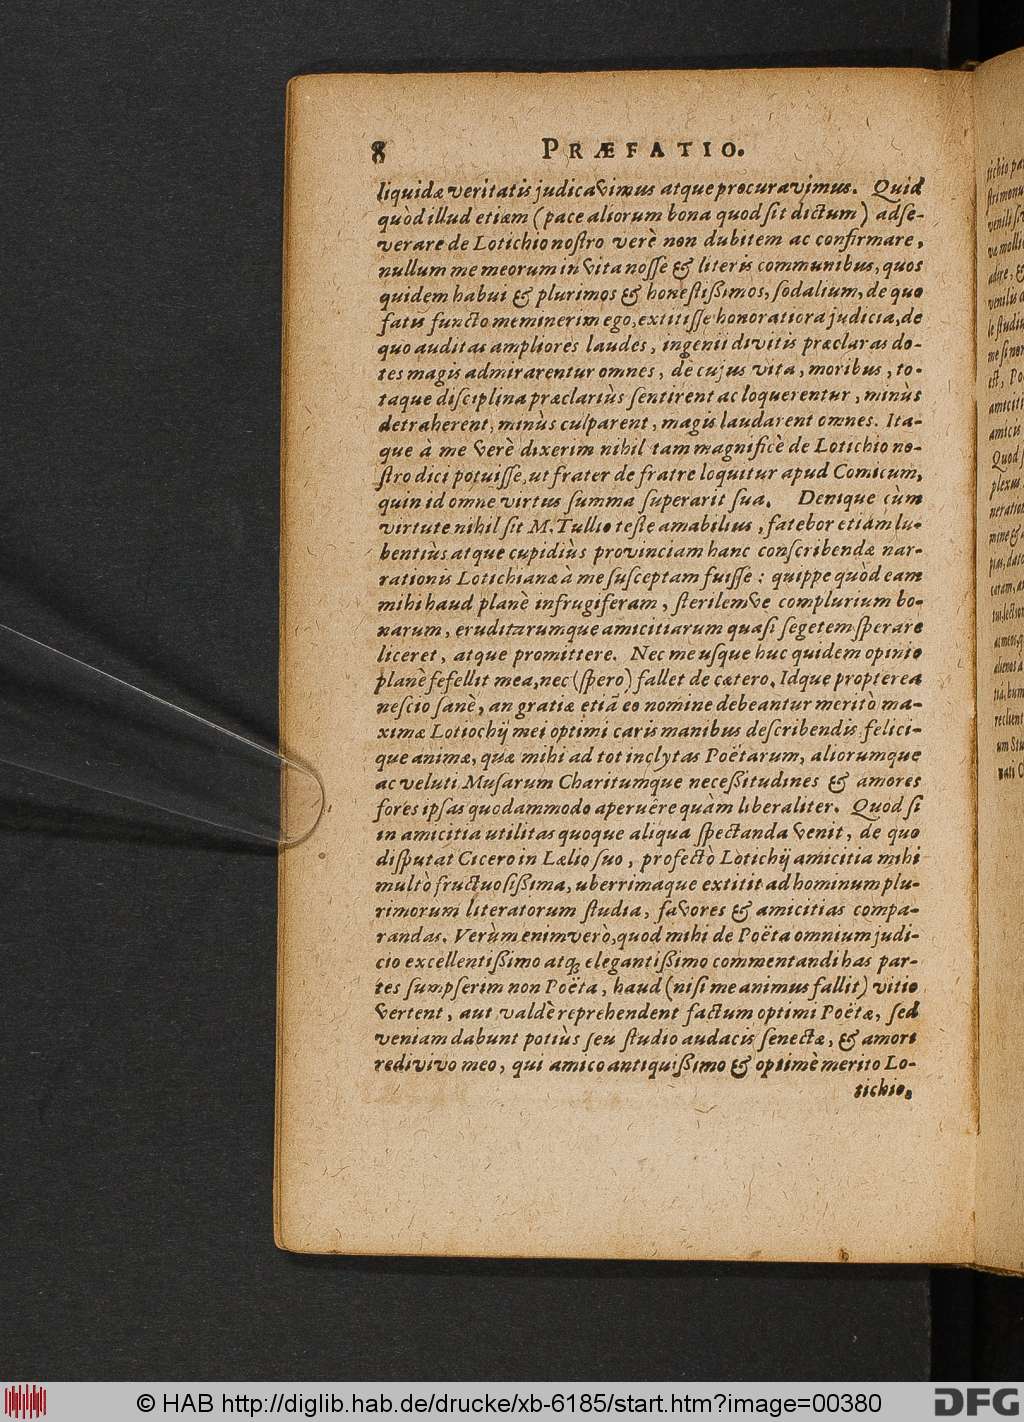 8 PRÆFATIO.
liquidæ veritatis judicavimus atque procuravimus. Quid
quòd illud etiam (pace aliorum bona quod sit dictum) adse-
verare de Lotichio nostro verè non dubitem ac confirmare,
nullum me meorum in vita nosse & literis communibus, quos
quidem habui & plurimos & honestißimos, sodalium, de quo
fatis functo meminerim ego, extitisse honoratiora judicia, de
quo auditas ampliores laudes, ingenii divitis præclaras do-
tes magis admirarentur omnes, de cujus vita, moribus, to-
taque disciplina præclariùs sentirent ac loquerentur, minùs
detraherent, minùs culparent, magis laudarent omnes. Ita-
que à me verè dixerim nihil tam magnificè de Lotichio no-
stro dici potuisse, ut frater de fratre loquitur apud Comicum,
quin id omne virtus summa superarit sua. Denique cùm
virtute nihil sit M. Tullio teste amabilius, fatebor etiam lu-
bentiùs atque cupidiùs provinciam hanc conscribendæ nar-
rationis Lotichianæ à me susceptam fuisse: quippe quòd eam
mihi haud planè infrugiferam, sterilemve complurium bo-
narum, eruditarumque amicitiarum quasi segetem sperare
liceret, atque promittere. Nec me usque huc quidem opinio
planè fefellit mea, nec (spero) fallet de cætero. Idque propterea
nescio sanè, an gratiæ etiã eo nomine debeantur meritò ma-
ximæ Lotiochij mei optimi caris manibus describendis felici-
que animæ, quæ mihi ad tot inclytas Poëtarum, aliorumque
ac veluti Musarum Charitumque necessitudines & amores
fores ipsas quodammodo aperuêre quàm liberaliter. Quòd si
in amicitia utilitas quoque aliqua spectanda venit, de quo
disputat Cicero in Lælio suo, profectò Lotichij amicitia mihi
multò fructuosißima, uberrimaque extitit ad hominum plu-
rimorum literatorum studia, favores & amicitias compa-
randas. Verùm enimverò, quod mihi de Poëta omnium judi-
cio excellentißimo atq; elegantißimo commentandi has par-
tes sumpserim non Poëta, haud (nisi me animus fallit) vitio
vertent, aut valdè reprehendent factum optimi Poëtæ, sed
veniam dabunt potiùs seu studio audacis senectæ, & amori
redivivo meo, qui amico antiquißimo & optimè merito Lo-
tichio,
© HAB http://diglib.hab.de/drucke/xb-6185/start.htm?image=00380
DFG